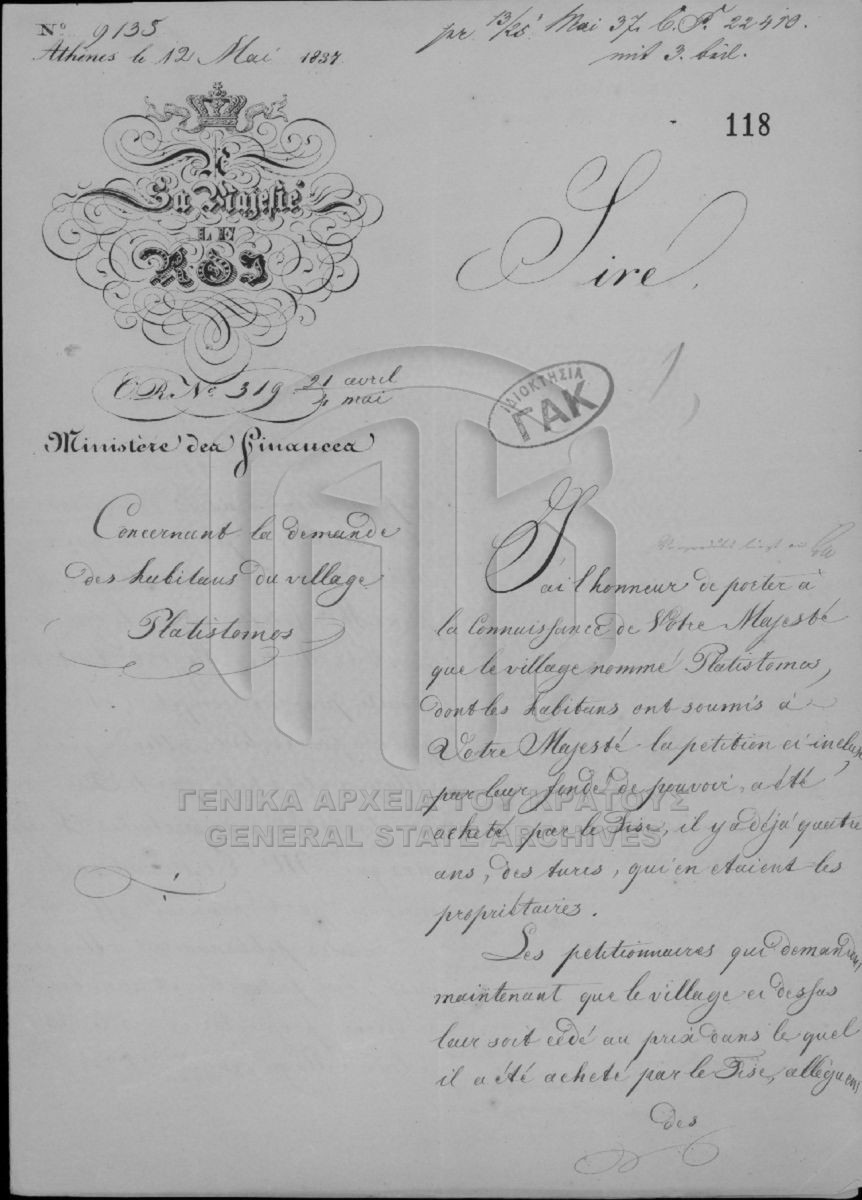 Nº 9135
Athènes le 12 Mai 1837
pr 13/25 Mai 37. C. P. 22410.
mit 3. beil.
118
A
Sa Majesté
LE
ROI
Sire,
C R. Nº 319 21 avril
4 mai
ΙΔΙΟΚΤΗΣΙΑ
ΓΑΚ
Ministère des Finances
Concernant la demande
des habitans du village
Platistomos
J'ai l'honneur de porter à
la connaissance de Votre Majesté
que le village nommé Platistomos,
dont les habitans ont soumis à
Votre Majesté la petition ci incluse,
par leur fondé de pouvoir, a été
acheté par le Fisc, il y a déjà quatre
ans, des turcs, qui en etaient les
propriétaires.
Les petitionnaires qui demandent
maintenant que le village ci dessus
leur soit cédé au prix dans le quel
il a été acheté par le Fisc, alléguens
des
ΓΕΝΙΚΑ ΑΡΧΕΙΑ ΤΟΥ ΚΡΑΤΟΥΣ
GENERAL STATE ARCHIVES